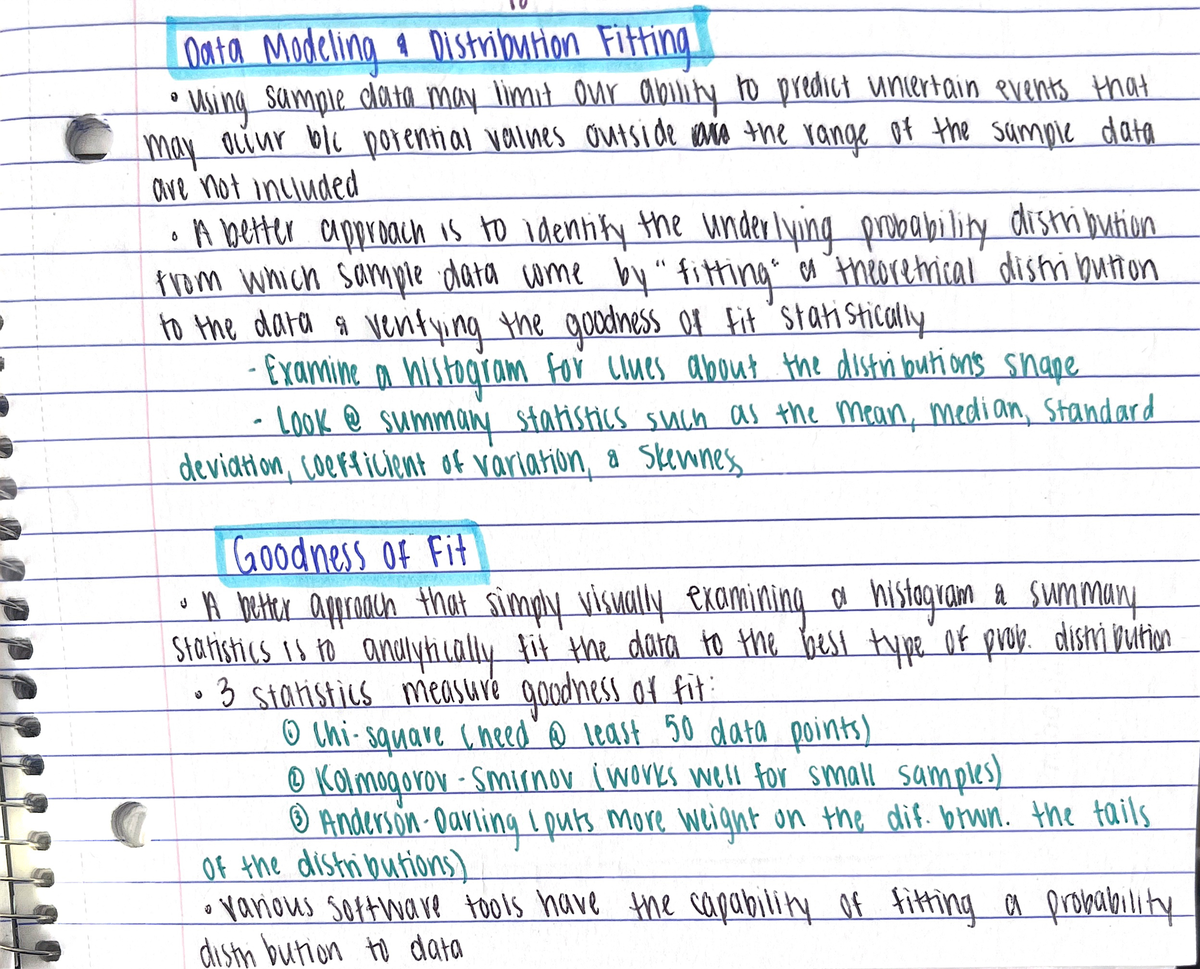 Data Modeling & Distribution Fitting
• Using sample data may limit our ability to predict uncertain events that
may occur b/c potential values outside the range of the sample data
are not included
• A better approach is to identify the underlying probability distribution
from which sample data come by "fitting" a theoretrical distribution
to the data & verifying the goodness of fit statistically
- Examine a histogram for clues about the distribution's shape
- Look @ summary statistics such as the mean, median, standard
deviation, coefficient of variation, & skewness
Goodness of Fit
• A better approach that simply visually examining a histogram & summary
statistics is to analytically fit the data to the best type of prob. distribution
• 3 statistics measure goodness of fit:
① Chi-square (need @ least 50 data points)
② Kolmogorov-Smirnov (works well for small samples)
③ Anderson-Darling (puts more weight on the dif. btwn. the tails
of the distributions)
• Various software tools have the capability of fitting a probability
distribution to data